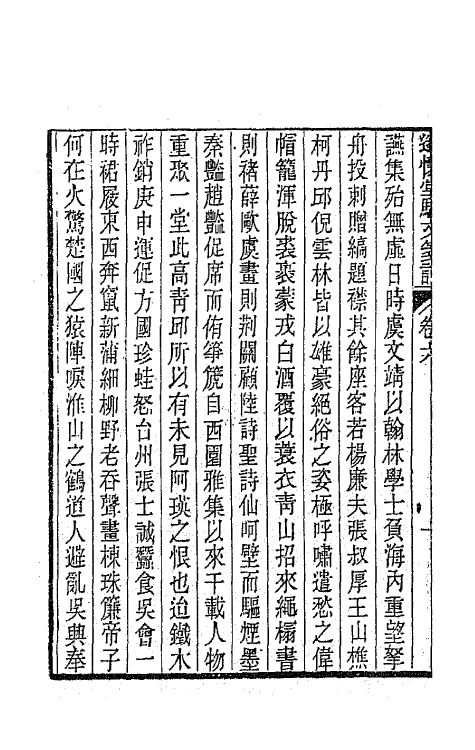 讌集殆無虛日時虞文靖以翰林學士負海內重望拏
舟投刺贈縞題襟其餘座客若楊廉夫張叔厚王山樵
柯丹邱倪雲林皆以雄豪絕俗之姿極呼嘯遣愁之偉
帽籠渾脫裘裂蒙戎白酒覆以蓑衣靑山招來繩榻書
則褚薛歐虞畫則荆關顧陸詩聖詩仙呵壁而驅煙墨
秦豔趙豔促席而侑箏篪自西園雅集以來千載人物
重聚一堂此高靑邱所以有未見阿瑛之恨也迨鐵木
祚銷庚申運促方國珍蛙怒台州張士誠蠶食吳會一
時裙屐東西奔竄新蒲細柳野老吞聲畫棟珠簾帝子
何在火驚楚國之猿陣唳淮山之鶴道人避亂吳興奉
懷堂駢文箋註 卷六